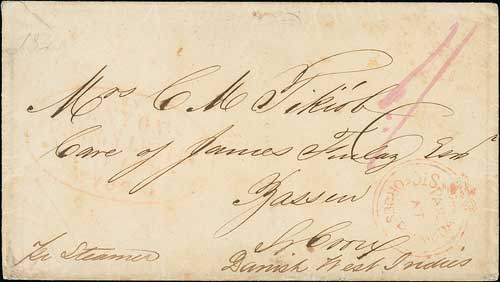 Mrs C M Tikiöb
Care of James Finlay Esqr
Bassin
St Croix
Danish West Indies
Pr Steamer